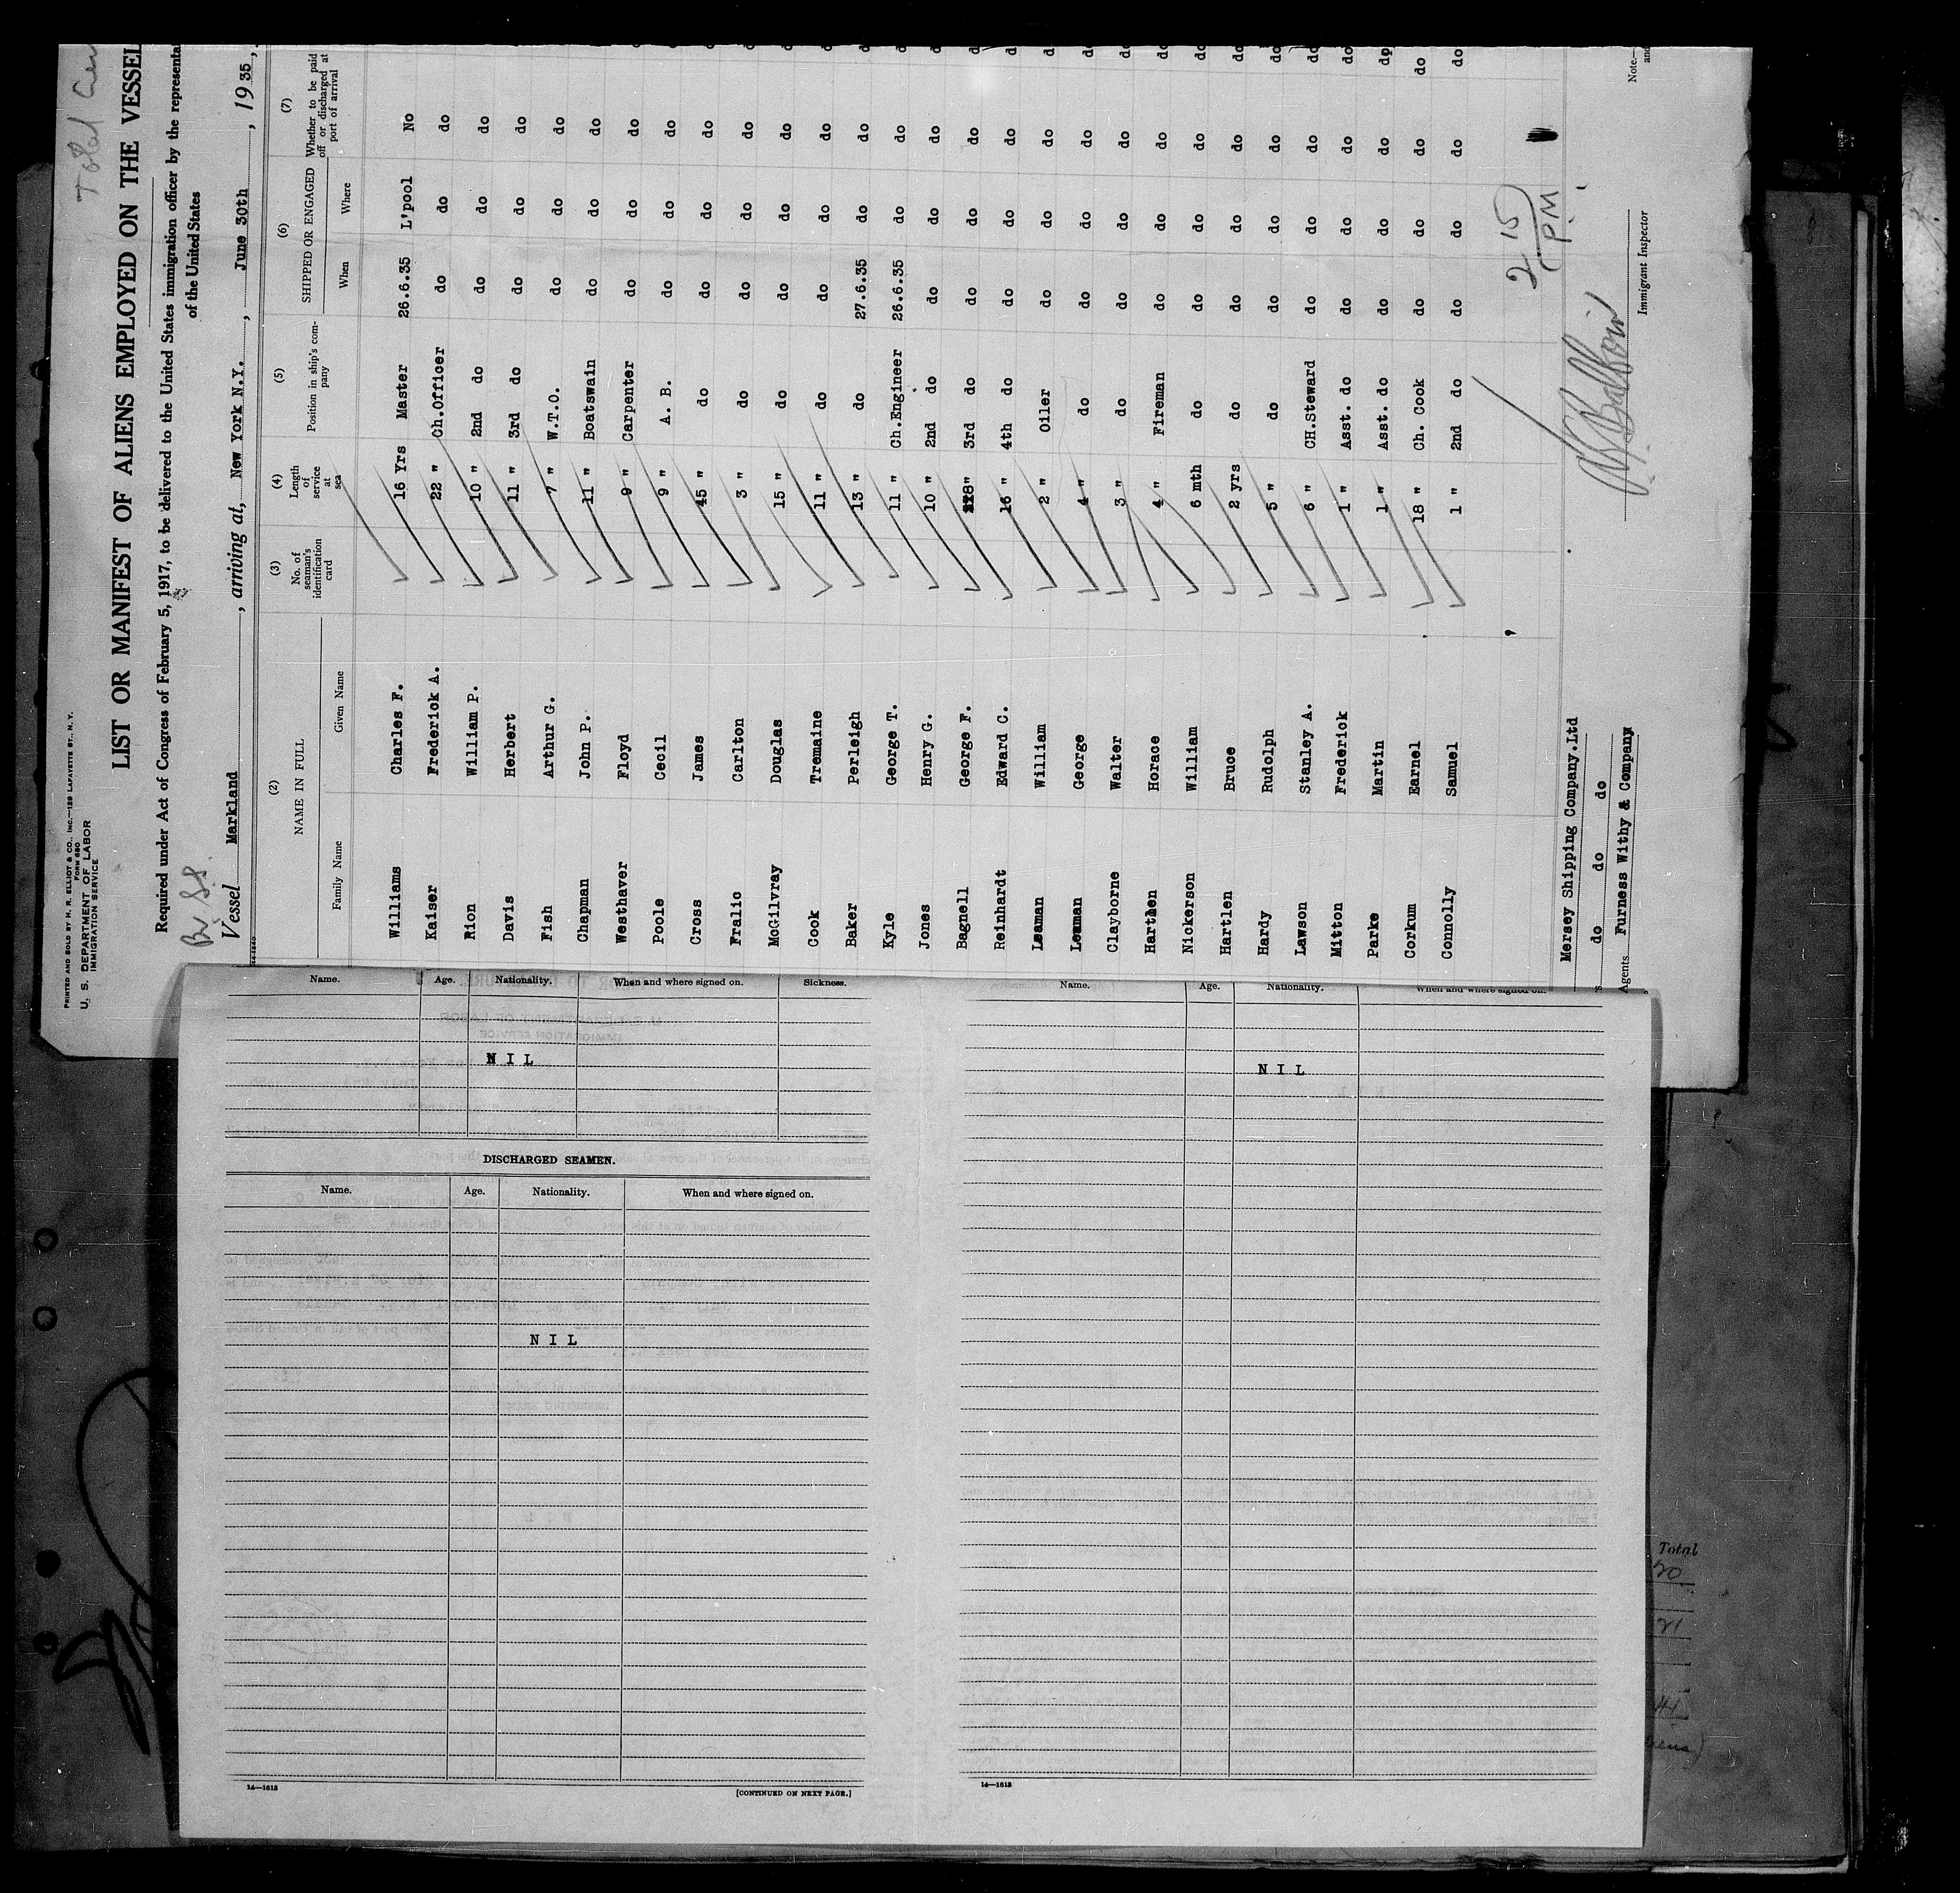 PRINTED AND SOLD BY H. R. ELLIOT & CO., INC.—129 LAFAYETTE ST., N. Y.
FORM 680
U. S. DEPARTMENT OF LABOR
IMMIGRATION SERVICE
Total
LIST OR MANIFEST OF ALIENS EMPLOYED ON THE VESSEL
Required under Act of Congress of February 5, 1917, to be delivered to the United States immigration officer by the representa
of the United States
Br SS.
Vessel Markland, arriving at, New York N.Y., June 30th, 1935,
(2) (3) (4) (5) (6) (7)
NAME IN FULL No. of seaman's identification card Length of service at sea Position in ship's company SHIPPED OR ENGAGED Whether to be paid off or discharged at port of arrival
Family Name Given Name When Where
Williams Charles F. 16 Yrs Master 26.6.35 L'pool No do
Kaiser Frederick A. 22 " Ch.Officer do do do do
Rion William P. 10 " 2nd do do do do do
Davis Herbert 11 " 3rd do do do do do
Fish Arthur G. 7 " W.T.O. do do do do
Chapman John P. 11 " Boatswain do do do do
Westhaver Floyd 9 " Carpenter do do do do
Poole Cecil 9 " A. B. do do do do
Cross James 45 " do do do do do
Fralic Carlton 3 " do do do do do
McGilvray Douglas 15 " do do do do do
Cook Tremaine 11 " do do do do do
Baker Perleigh 13 " do 27.6.35 do do do
Kyle George T. 11 " Ch.Engineer 26.6.35 do do do
Jones Henry G. 10 " 2nd do do do do do
Bagnell George F. 3rd do do do do do
Reinhardt Edward C. 16 " 4th do do do do do
Leaman William 2 " Oiler do do do do
Leaman George 4 " do do do do do
Clayborne Walter 3 " do do do do do
Hartlen Horace 4 " Fireman do do do do
Nickerson William 6 mth do do do do do
Hartlen Bruce 2 yrs do do do do do
Hardy Rudolph 5 " do do do do do
Lawson Stanley A. 6 " CH.Steward do do do do
Mitton Frederick 1 " Asst. do do do do do
Parke Martin 1 " Asst. do do do do do
Corkum Earnel 18 " Ch. Cook do do do do
Connolly Samuel 1 " 2nd do do do do do
2 15
P.M
Mersey Shipping Company.Ltd
do do do
Agents Furness Withy & Company
Immigrant Inspector
Note.—
and
Name. Age. Nationality. When and where signed on. Sickness.
N I L
DISCHARGED SEAMEN.
Name. Age. Nationality. When and where signed on.
N I L
14—1613
[CONTINUED ON NEXT PAGE.]
Name. Age. Nationality. When and where signed on.
N I L
14—1613
Total
20
21